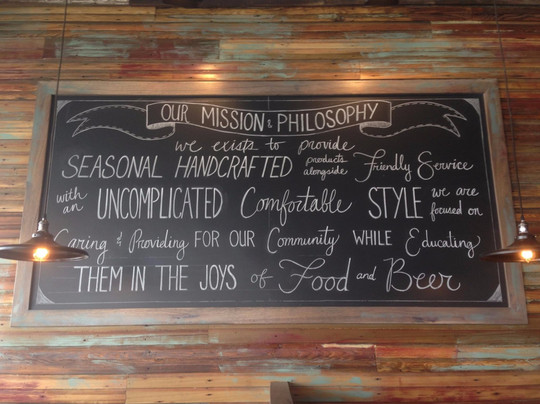 OUR MISSION & PHILOSOPHY
we exists to provide
SEASONAL HANDCRAFTED products alongside Friendly Service
with an UNCOMPLICATED Comfortable STYLE we are focused on
Caring & Providing FOR OUR Community WHILE Educating
THEM IN THE JOYS of Food and Beer